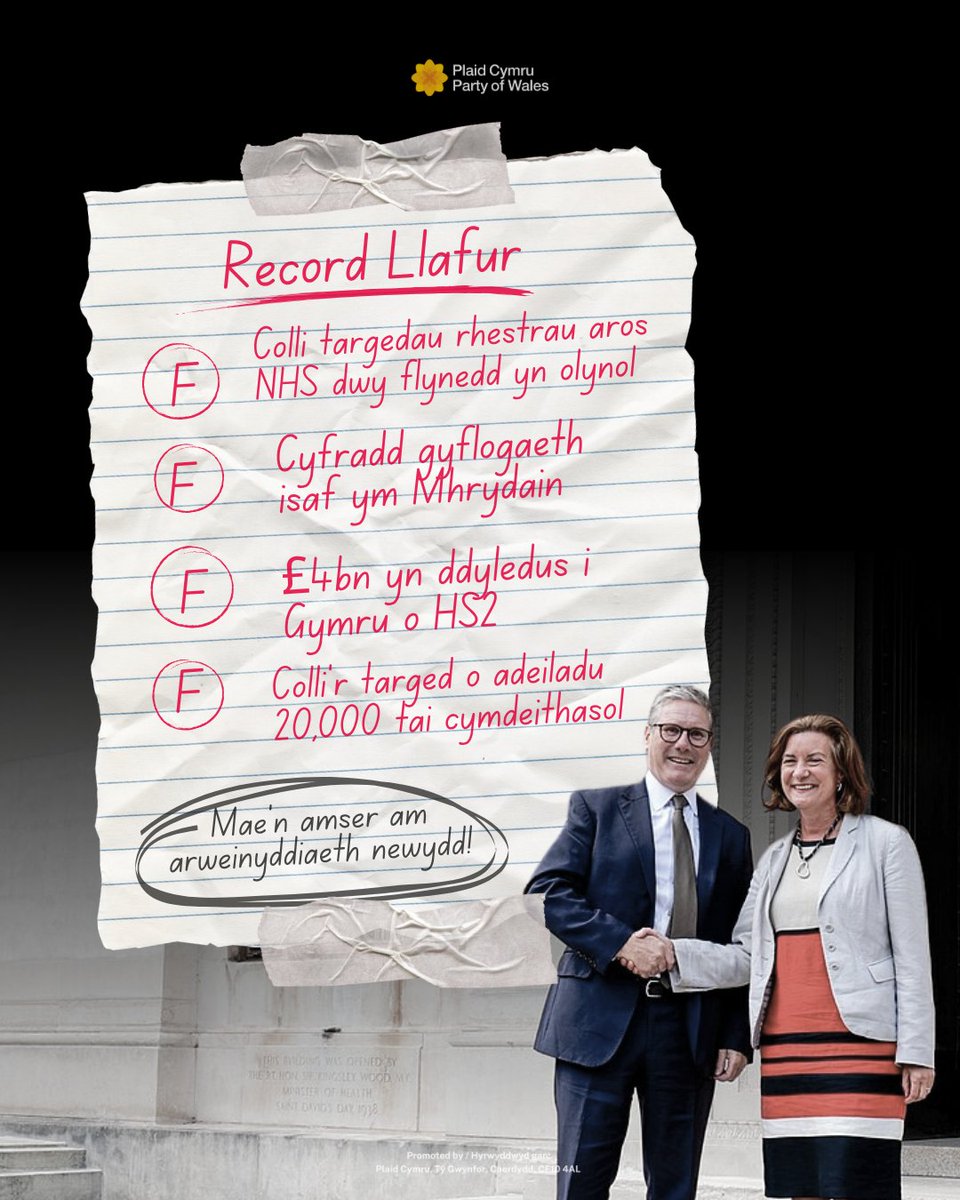 Plaid Cymru
Party of Wales
Record Llafur
F
Colli targedau rhestrau aros
NHS dwy flynedd yn olynol
F
Cyfradd gyflogaeth
isaf ym Mhrydain
F
£4bn yn ddyledus i
Gymru o HS2
F
Colli'r targed o adeiladu
20,000 tai cymdeithasol
Mae'n amser am
arweinyddiaeth newydd!
THIS BUILDING WAS OPENED BY
THE RT. HON. SIR KINGSLEY WOOD, M.P.
MINISTER OF HEALTH
SAINT DAVID'S DAY 1938
Promoted by / Hyrwyddwyd gan:
Plaid Cymru, Tŷ Gwynfor, Caerdydd, CF10 4AL